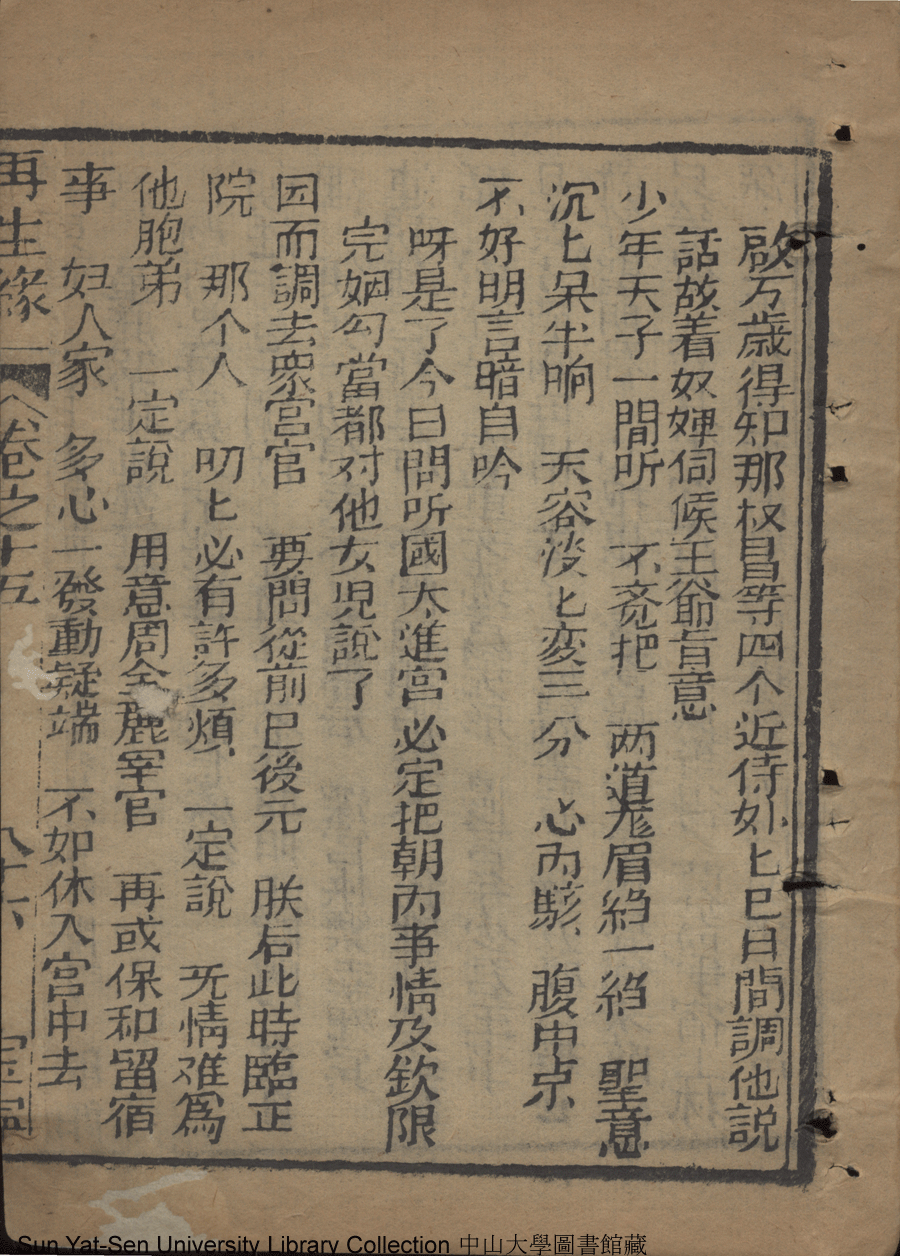 啟万歲得知那权昌等四个近侍外匕巳日間調他説
話故着奴婢伺候王爺旨意
少年天子一間听 不竟把 两道龙眉縐一縐 聖意
沉匕呆半晌 天容淡匕変三分 心内駭 腹中点
不好明言暗自吟
呀是了今日間听國太進宮必定把朝内事情及欽限
完姻勾當都对他女児說了
因而調去衆宮官 要問從前巳後元 朕后此時臨正
院 那个人 叨匕必有許多煩 一定說 旡情难爲
他胞弟 一定說 用意周全麗宰官 再或保和留宿
事 妇人家 多心一發動疑端 不如休入宮中去
再生緣 卷之十五 八十六
Sun Yat-Sen University Library Collection 中山大學圖書館藏